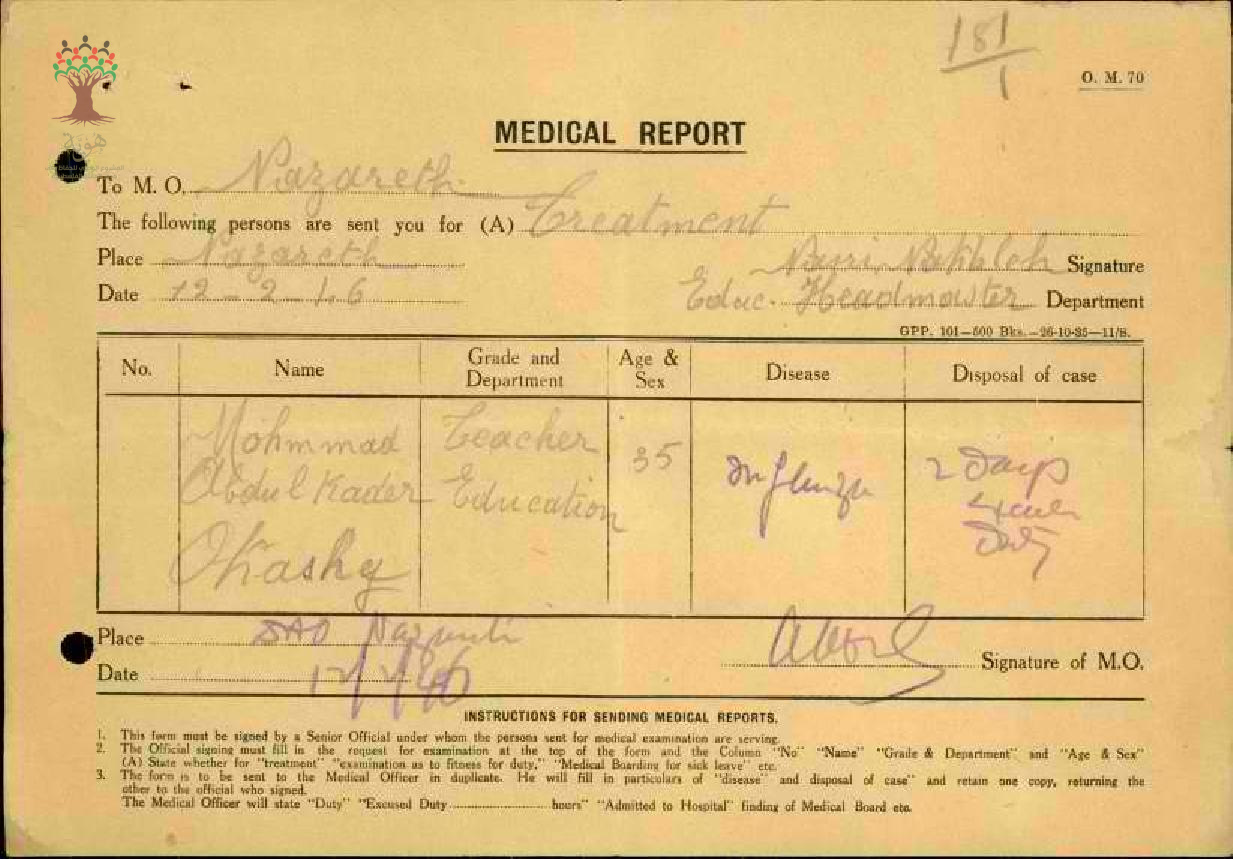 181/1
O. M. 70
MEDICAL REPORT
To M. O. Nazareth
The following persons are sent you for (A) Treatment
Place Nazareth
Signature
Date 12-2-46
Educ. Headmaster Department
GPP. 101—500 Bks.—26-10-35—11/B.
No. Name Grade and Department Age & Sex Disease Disposal of case
Mohmmad Teacher 35 Influenza 2 Days
Abdul Kader Education Duty
Okashy
Place SMO Nazareth
Signature of M.O.
Date 12/2/46
INSTRUCTIONS FOR SENDING MEDICAL REPORTS.
1. This form must be signed by a Senior Official under whom the persons sent for medical examination are serving.
2. The Official signing must fill in the request for examination at the top of the form and the Column "No" "Name" "Grade & Department" and "Age & Sex"
(A) State whether for "treatment" "examination as to fitness for duty," "Medical Boarding for sick leave" etc.
3. The form is to be sent to the Medical Officer in duplicate. He will fill in particulars of "disease" and disposal of case" and retain one copy, returning the
other to the official who signed.
The Medical Officer will state "Duty" "Excused Duty ........ hours" "Admitted to Hospital" finding of Medical Board etc.